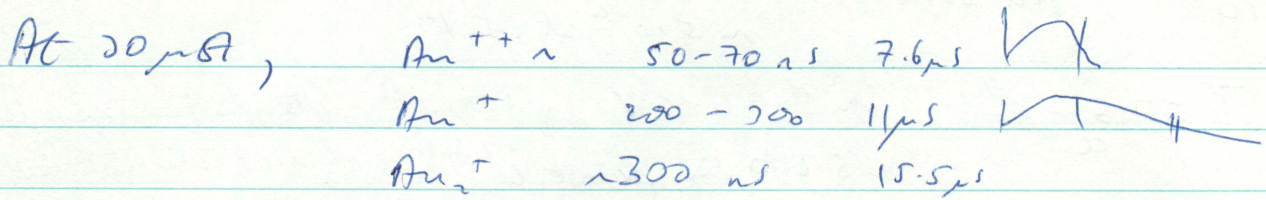 At 30 μA, Au⁺⁺ ~ 50-70 ns 7.6μs
Au⁺ 200 - 300 11μs
Au₂⁺ ~300 ns 15.5μs